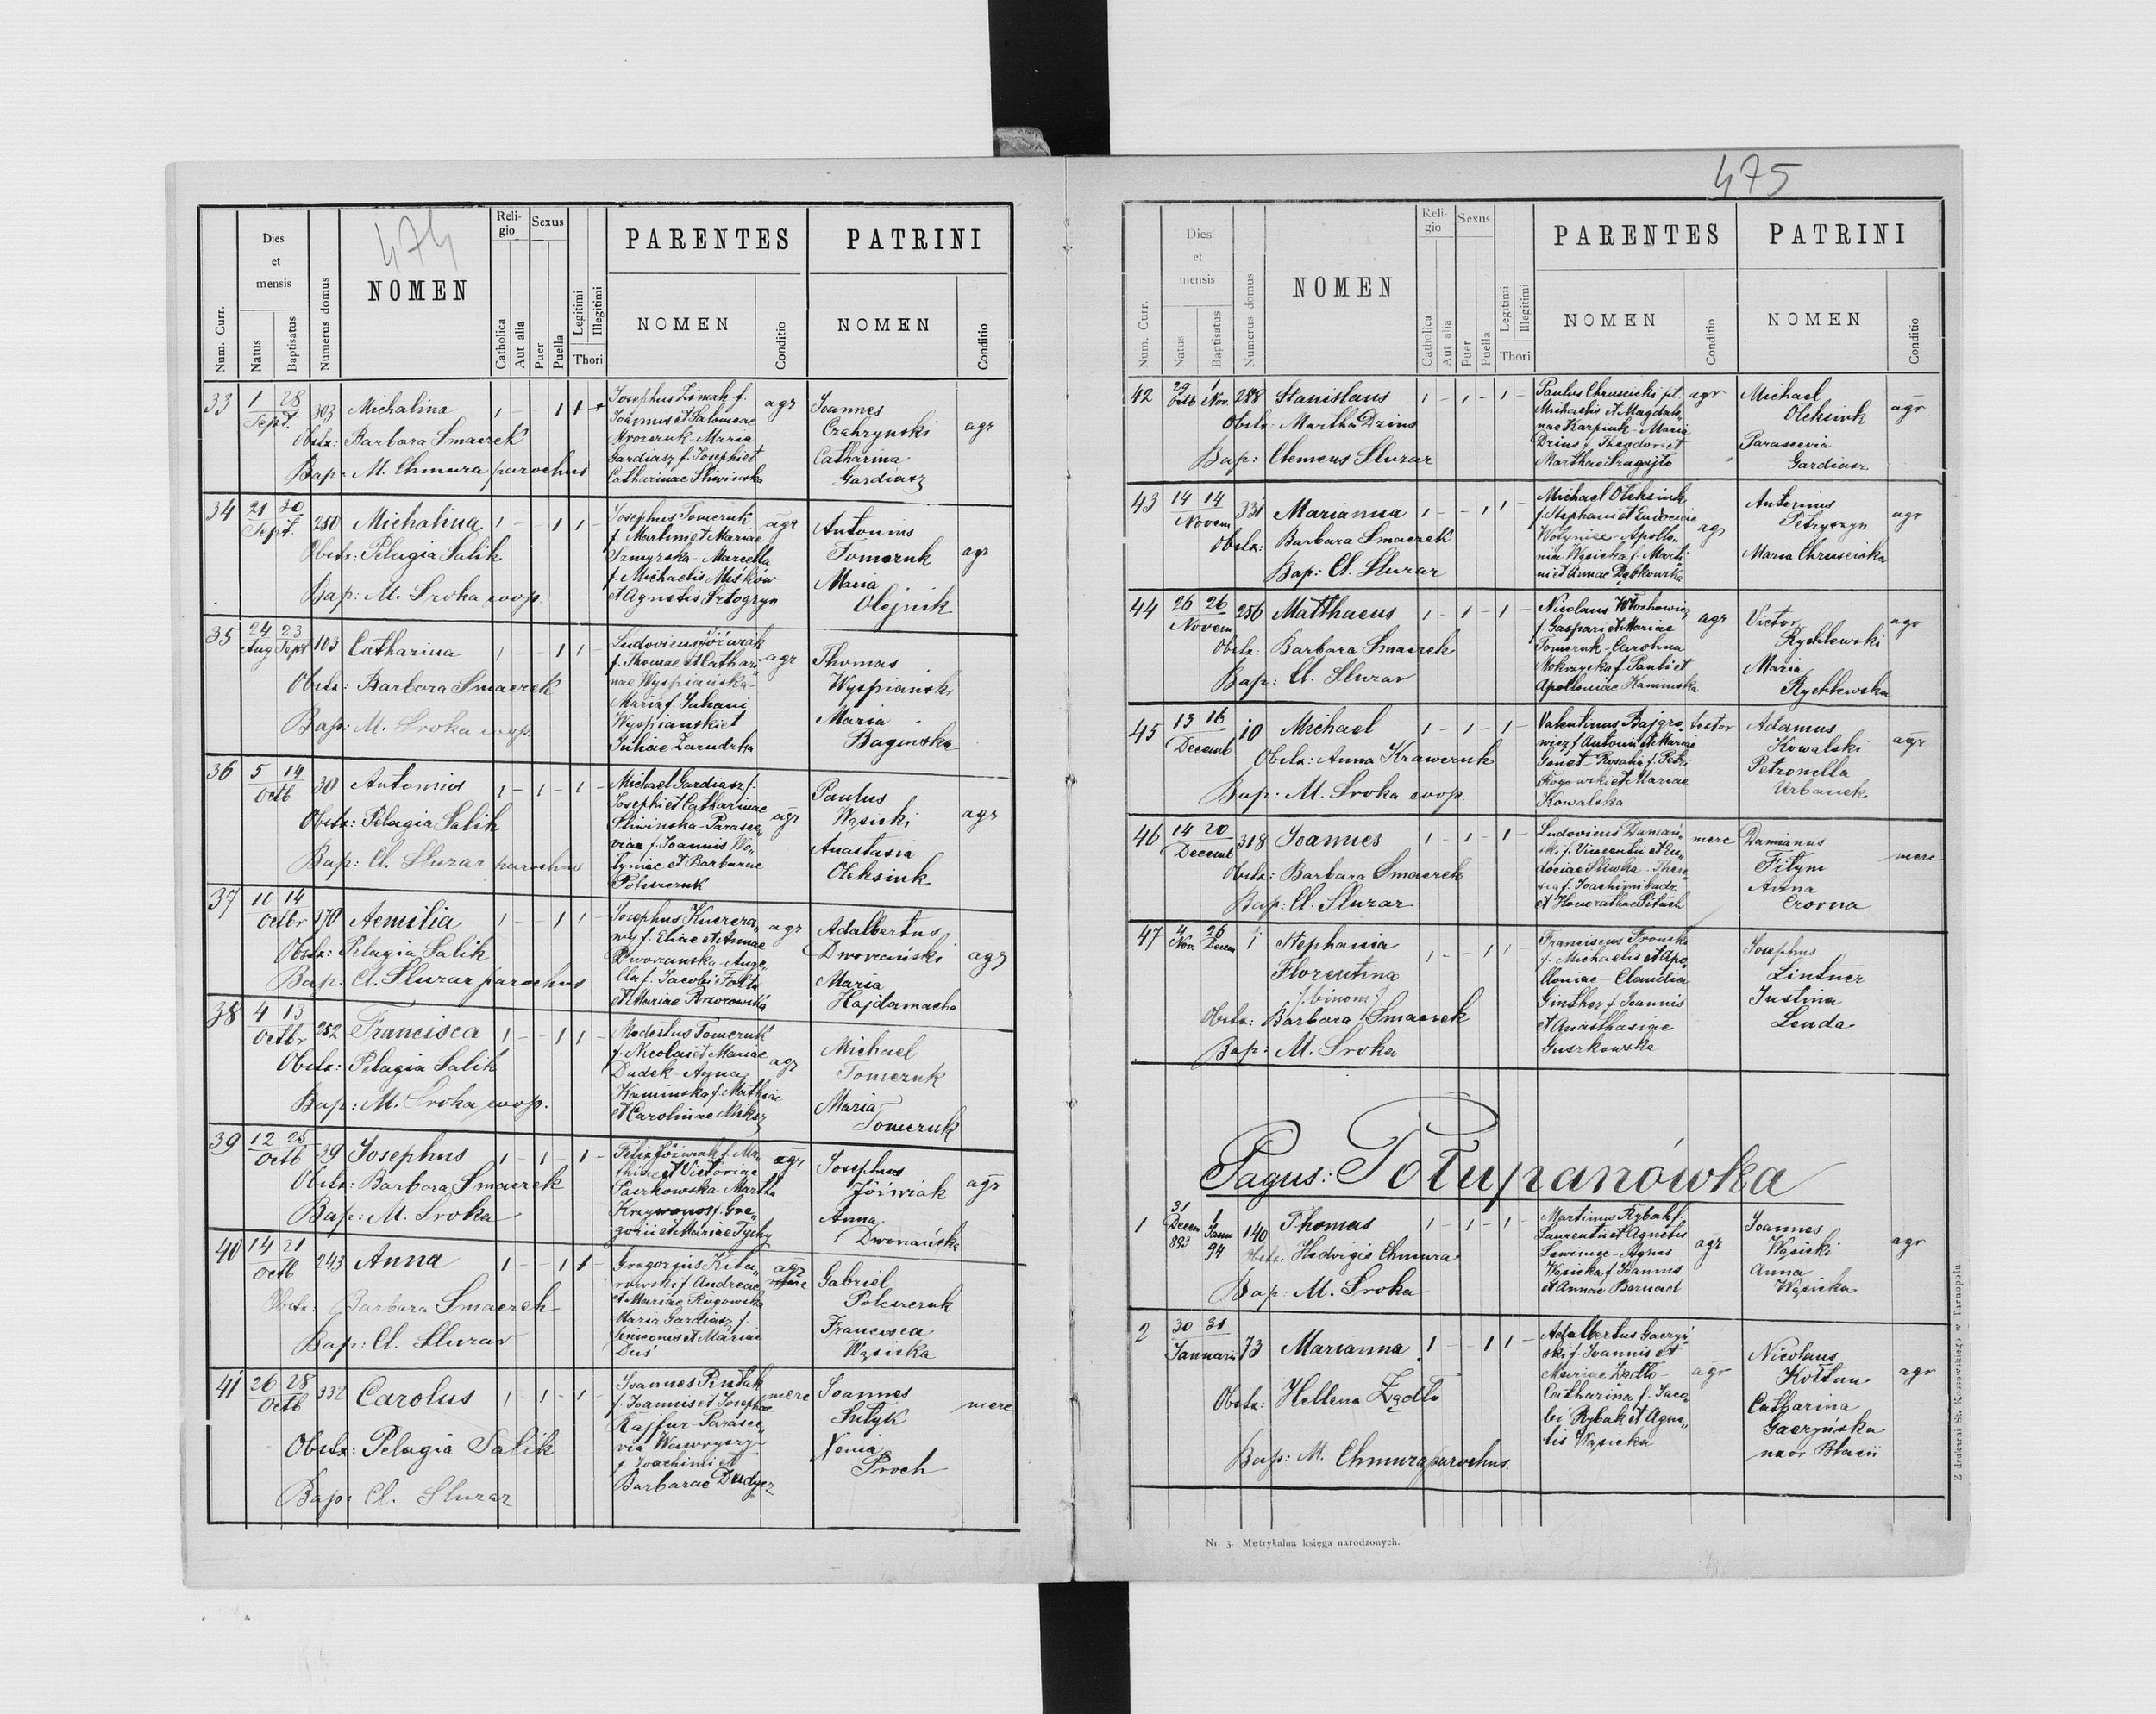 474
Num. Curr.
Dies et mensis
Natus
Baptisatus
Numerus domus
NOMEN
Reli-
gio
Catholica
Aut alia
Sexus
Puer
Puella
Legitimi
Illegitimi
Thori
PARENTES
NOMEN
Conditio
PATRINI
NOMEN
Conditio
33 1 28 Sept. 303 Michalina 1 - - 1 1
Obstx: Barbara Smaczek
Bap: M. Chmura parochus
Josephus Zimak f.
Joannis et Salomeae
Mroczuk - Maria
Gardiasz f. Josephi et
Catharinae Śliwińska
agr
Joannes
Catharina
Gardiasz
agr
34 21 30 Sept. 250 Michalina 1 - - 1 1 -
Obstx: Pelagia Salik
Bap: M. Sroka coop.
Josephus Tomczuk
f. Martini et Mariae
Szmyrska - Marcella
f. Michaelis Miśków
et Agnetis Sztogryn
agr
Antonius
Tomczuk
Maria
Olejnik
agr
35 24 Aug 23 Sept 103 Catharina 1 - - 1 1 -
Obstx: Barbara Smaczek
Bap: M. Sroka coop.
Ludovicus Jóźwiak
f. Thomae et Cathari„
nae Wyspiańska -
Maria f. Juliani
Wyspianski et
Juliae Zarudzka
agr
Thomas
Wyspiański
Maria
Baginska
36 5 14 Octb 30 Antonius 1 - 1 - 1 -
Obstx: Pelagia Salik
Bap: Cl. Sluzar parochus
Michael Gardiasz f.
Josephi et Catharinae
Śliwinska - Parasce„
viae f. Joannis Wo„
lyniec et Barbarae
Poleszczuk
agr
Paulus
Wąsicki
Anastasia
Oleksiuk
agr
37 10 14 Octbr 170 Aemilia 1 - - 1 1 -
Obstx: Pelagia Salik
Bap: Cl. Sluzar parochus
Josephus Kuczera„
wy f. Eliae et Annae
Dworzanska - Ange„
lla f. Jacobi Fołta
et Mariae Brzozowska
agr
Adalbertus
Dworzański
Maria
Hajdamacha
agr
38 4 13 Octbr 252 Francisca 1 - - 1 1 -
Obstx: Pelagia Salik
Bap: M. Sroka coop.
Modestus Tomczuk
f. Nicolai et Mariae
Dudek - Anna
Kaminska f. Mathiae
et Carolinae Miksz
agr
Michael
Tomczuk
Maria
Tomczuk
39 12 25 Octb 29 Josephus 1 - 1 - 1 -
Obstx: Barbara Smaczek
Bap: M. Sroka
Felix Jóźwiak f. Ma„
thiae et Victoriae
Paszkowska - Martha
Krzywonos f. Gre„
gorii et Mariae Tychy
agr
Josephus
Jóźwiak
Anna
Dworzańska
agr
40 14 21 Octb 243 Anna 1 - - 1 1
Obstx: Barbara Smaczek
Bap: Cl. Sluzar
Gregorius Kita„
rowski f. Andreae
et Mariae Rogowska
Maria Gardiasz f.
Simeonis et Mariae
Duś
agr
Gabriel
Poleszczuk
Francisca
Wąsicka
41 26 28 Octb 332 Carolus 1 - 1 - 1 -
Obstx: Pelagia Salik
Bap: Cl. Sluzar
Joannes Pindak
f. Joannis et Josephae
Kajfur - Parasce„
via Wawryszyn
f. Joachimi et
Barbarae Dudycz
merc
Joannes
Sutyk
Xenia
Proch
merc
475
Num. Curr.
Dies et mensis
Natus
Baptisatus
Numerus domus
NOMEN
Reli-
gio
Catholica
Aut alia
Sexus
Puer
Puella
Legitimi
Illegitimi
Thori
PARENTES
NOMEN
Conditio
PATRINI
NOMEN
Conditio
42 29 Octb 1 Nov. 288 Stanislaus 1 - 1 - 1 -
Obstx: Martha Dzius
Bap: Clemens Sluzar
Paulus Chruscicki
Michaelis et Magdale
nae Karpiuk - Maria
Dzius f. Theodori et
Marthae
agr
Michael
Oleksiuk
Parascevia
Gardiasz
agr
43 14 14 Novem 331 Marianna 1 - - 1 1 -
Obstx: Barbara Smaczek
Bap: Cl. Sluzar
Michael Oleksiuk
f. Stephani et Eudociae
Wolyniec - Apollo„
nia Wąsicka f. Marti„
ni et Annae Dąbkowska
agr
Antonius
Petryszyn
Maria Chruscicka
agr
44 26 26 Novem 256 Matthaeus 1 - 1 - 1 -
Obstx: Barbara Smaczek
Bap: Cl. Sluzar
Nicolaus Włochowicz
f. Gaspari et Mariae
Tomczuk - Carolina
Mokrzycka f. Pauli et
Apolloniae Kaminska
agr
Victor
Rychlewski
Maria
Rychlewska
agr
45 13 16 Decemb 10 Michael 1 - 1 - 1 -
Obstx: Anna Krawczuk
Bap: M. Sroka coop.
Valentinus Bajgro„
wicz f. Antonii et Mariae
Gonet - Rosalia f. Petri
Rogowski et Mariae
Kowalska
textor
Adamus
Kowalski
Petronella
Urbanek
agr
46 14 20 Decemb 318 Joannes 1 - 1 - 1 -
Obstx: Barbara Smaczek
Bap: Cl. Sluzar
Ludovicus Dumań„
ski f. Vincentii et Eu„
dociae Śliwka - There„
sia f. Joachimi
et Honorathae
merc
Damianus
Fitym
Anna
Czorna
merc
47 4 Nov. 26 Decem 1 Stephania
Florentina
/:binom:/
1 - - 1 1 -
Obstx: Barbara Smaczek
Bap: M. Sroka
Franciscus
f. Michaelis et Apo„
lloniae - Claudia
Ginther f. Joannis
et Anasthasiae
Guszkowska
Josephus
Lintner
Justina
Lenda
Pagus: Połupanówka
1 31 Decem 893 1 Janu 94 140 Thomas 1 - 1 - 1 -
Obstx: Hedvigis Chmura
Bap: M. Sroka
Martinus Rybak f.
Laurentii et Agnetis
Agnes
Wąsicka f. Joannis
et Annae Bernad
agr
Joannes
Wąsicki
Anna
Wąsicka
agr
2 30 31 Januarii 73 Marianna 1 - - 1 1 -
Obstx: Hellena Żądło
Bap: M. Chmura parochus.
Adalbertus Gaczyń„
ski f. Joannis et
Mariae Żądło -
Catharina f. Jaco„
bi Rybak et Agne„
tis Wąsicka
agr
Nicolaus
Kołtun
Catharina
Gaczyńska
uxor Blasii
agr
Nr. 3. Metrykalna księga narodzonych.
Z drukarni St. Kossowskiego w Tarnopolu